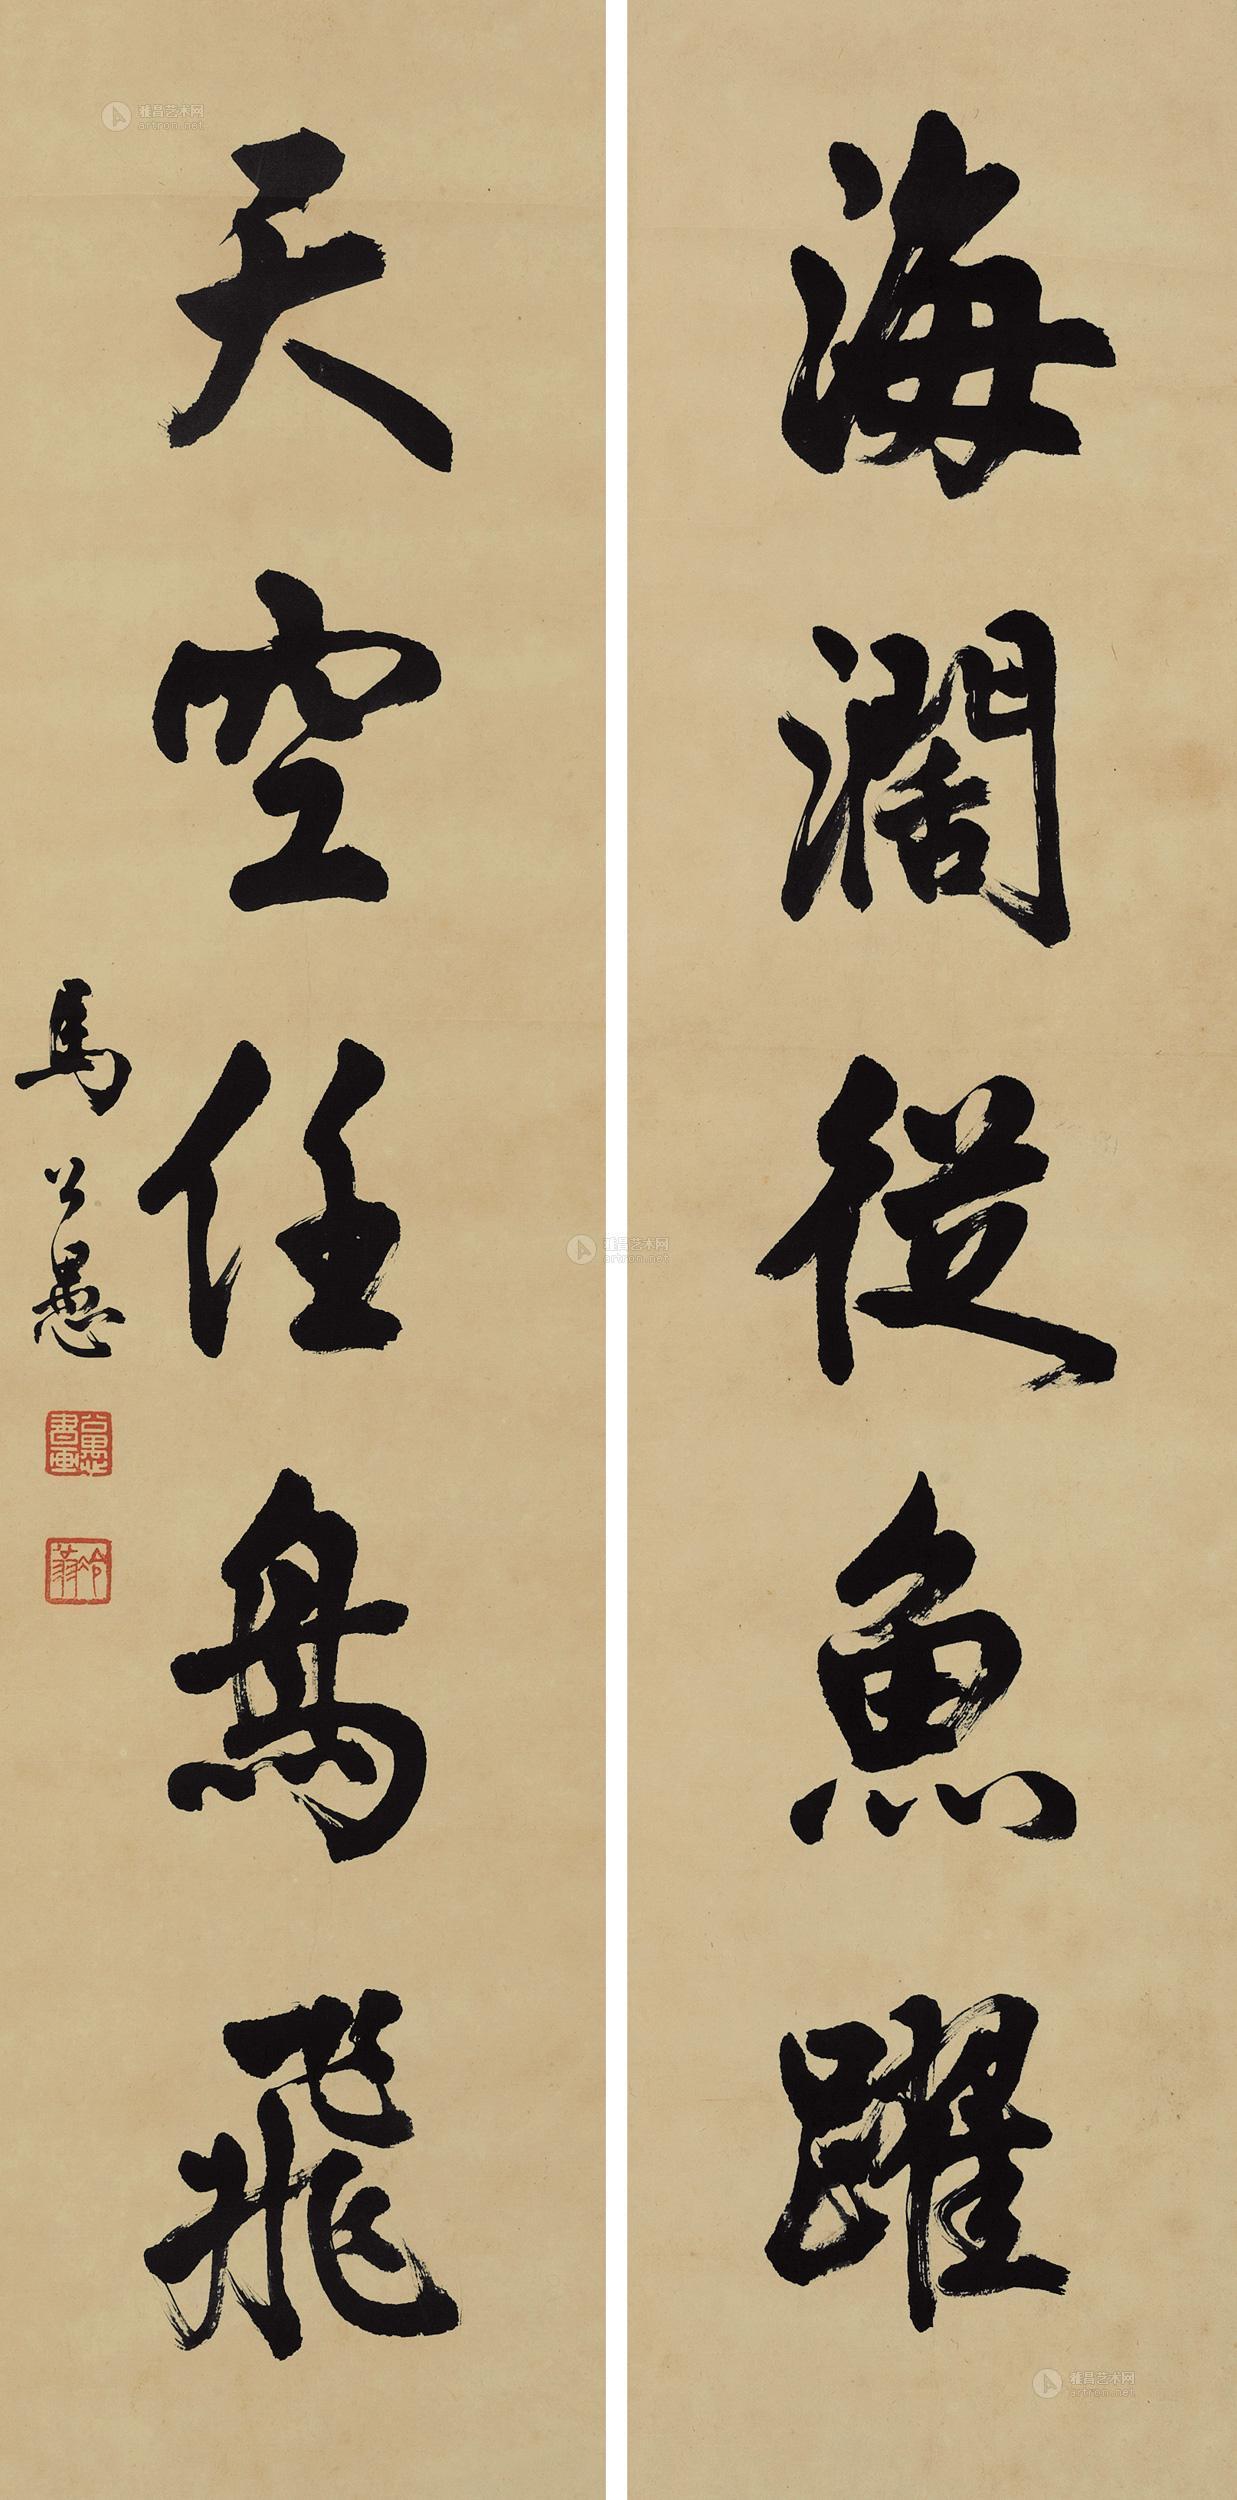 海闊從魚躍
天空任鳥飛
馬公愚
公愚書畫
冷翁
雅昌艺术网
artron.net
雅昌艺术网
artron.net
雅昌艺术网
artron.net